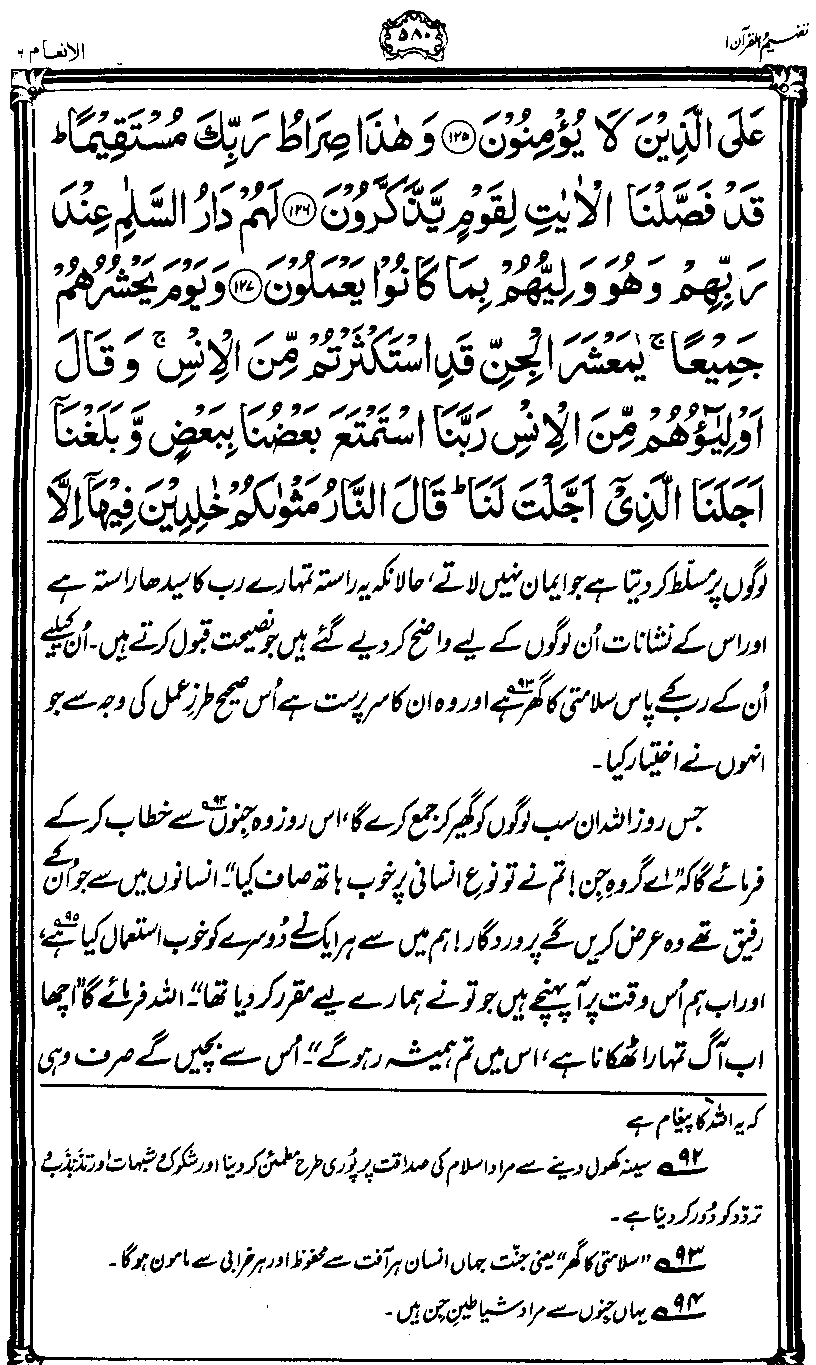 تفہیم القرآن ۱
۵۸۰
الانعام ۶
عَلَى الَّذِيْنَ لَا يُؤْمِنُوْنَ ﴿۱۲۵﴾ وَهٰذَا صِرَاطُ رَبِّكَ مُسْتَقِيْمًا ؕ
قَدْ فَصَّلْنَا الْاٰيٰتِ لِقَوْمٍ يَّذَّكَّرُوْنَ ﴿۱۲۶﴾ لَهُمْ دَارُ السَّلٰمِ عِنْدَ
رَبِّهِمْ وَهُوَ وَلِيُّهُمْ بِمَا كَانُوْا يَعْمَلُوْنَ ﴿۱۲۷﴾ وَيَوْمَ يَحْشُرُهُمْ
جَمِيْعًا ۚ يٰمَعْشَرَ الْجِنِّ قَدِ اسْتَكْثَرْتُمْ مِّنَ الْاِنْسِ ۚ وَقَالَ
اَوْلِيٰٓؤُهُمْ مِّنَ الْاِنْسِ رَبَّنَا اسْتَمْتَعَ بَعْضُنَا بِبَعْضٍ وَّبَلَغْنَآ
اَجَلَنَا الَّذِيْٓ اَجَّلْتَ لَنَا ؕ قَالَ النَّارُ مَثْوٰىكُمْ خٰلِدِيْنَ فِيْهَآ اِلَّا
لوگوں پر مسلّط کر دیتا ہے جو ایمان نہیں لاتے، حالانکہ یہ راستہ تمہارے رب کا سیدھا راستہ ہے
اور اس کے نشانات اُن لوگوں کے لیے واضح کر دیے گئے ہیں جو نصیحت قبول کرتے ہیں۔ اُن کیلیے
اُن کے رب کے پاس سلامتی کا گھر۹۳ ہے اور وہ ان کا سرپرست ہے اُس صحیح طرزِ عمل کی وجہ سے جو
انہوں نے اختیار کیا۔
جس روز اللہ ان سب لوگوں کو گھیر کر جمع کرے گا، اس روز وہ جِنوں۹۴ سے خطاب کر کے
فرمائے گا کہ "اے گروہِ جِن! تم نے تو نوعِ انسانی پر خوب ہاتھ صاف کیا"۔ انسانوں میں سے جو اُن کے
رفیق تھے وہ عرض کریں گے پروردگار! ہم میں سے ہر ایک نے دُوسرے کو خوب استعمال کیا۹۵ ہے،
اور اب ہم اُس وقت پر آ پہنچے ہیں جو تو نے ہمارے لیے مقرر کر دیا تھا"۔ اللہ فرمائے گا "اچھا
اب آگ تمہارا ٹھکانا ہے، اس میں تم ہمیشہ رہو گے"۔ اُس سے بچیں گے صرف وہی
کہ یہ اللہ کا پیغام ہے
۹۲ سینہ کھول دینے سے مراد اسلام کی صداقت پر پُوری طرح مطمئن کر دینا اور شکوک و شبہات اور تذبذب و
تردّد کو دُور کر دینا ہے۔
۹۳ "سلامتی کا گھر" یعنی جنّت جہاں انسان ہر آفت سے محفوظ اور ہر خرابی سے مامون ہوگا۔
۹۴ یہاں جِنوں سے مراد شیاطینِ جِن ہیں۔